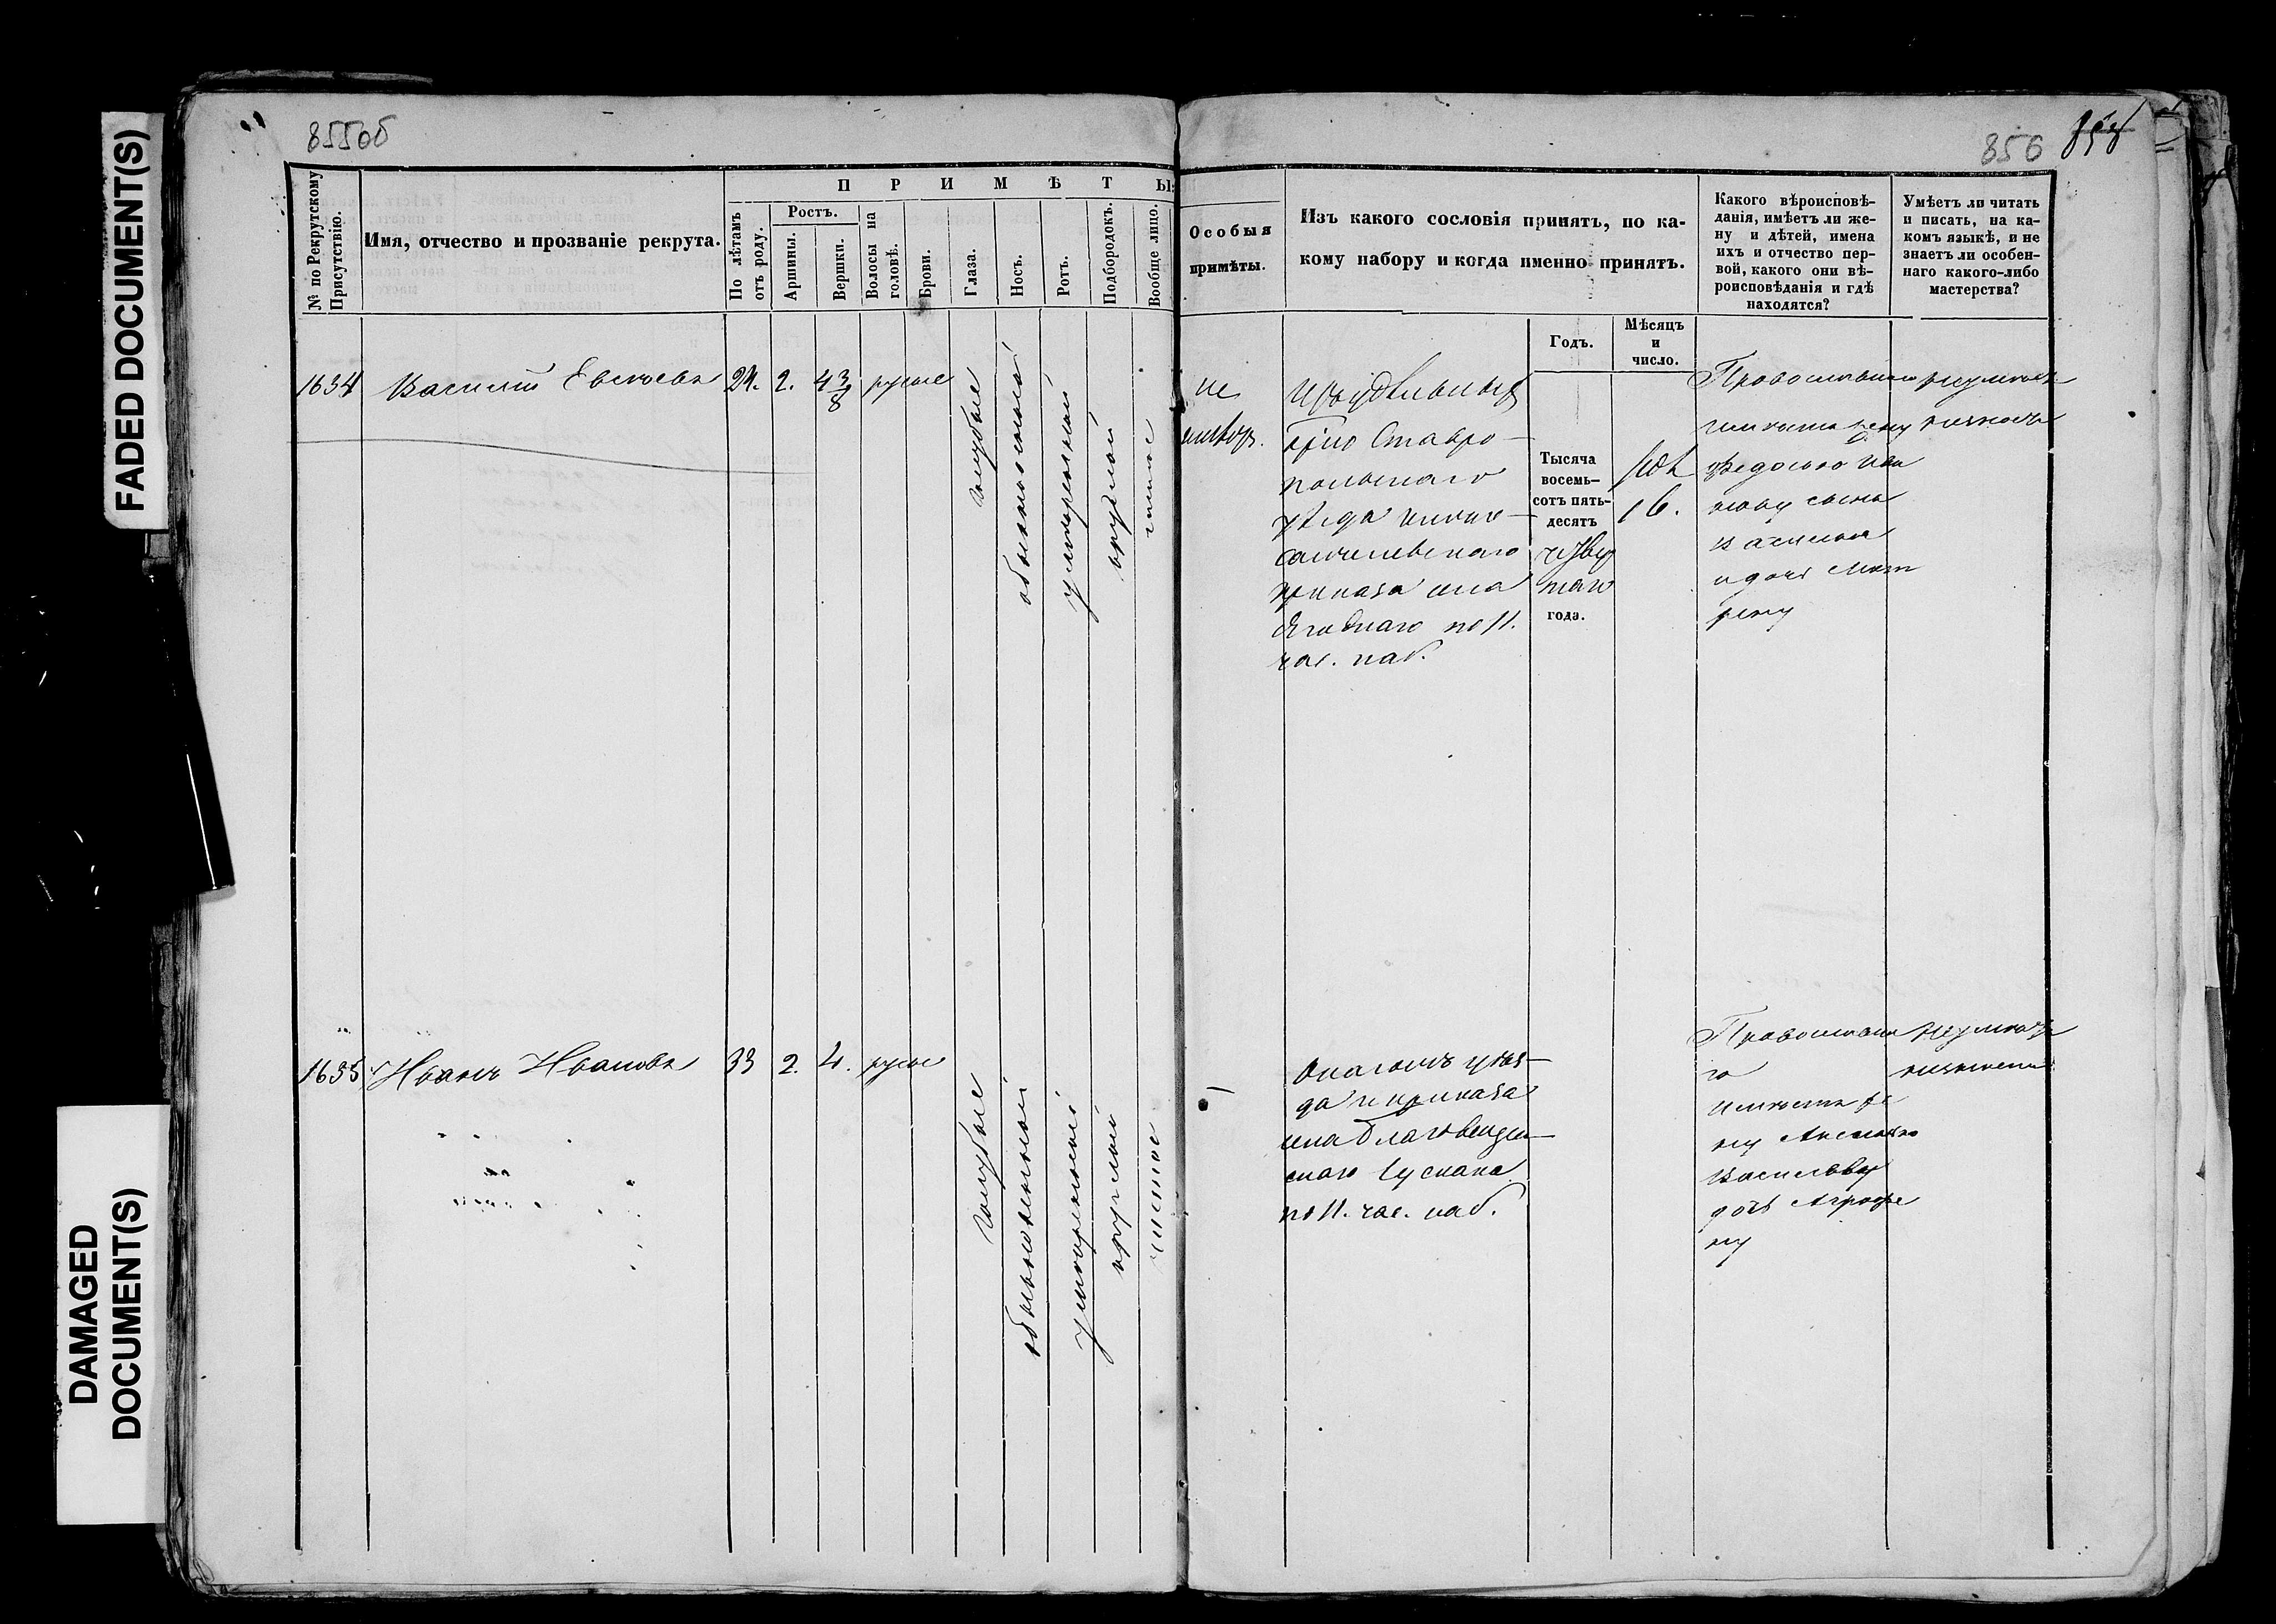 FADED DOCUMENT(S)
DAMAGED
DOCUMENT(S)
855об
856
№ по Рекрутскому
Присутствію.
Имя, отчество и прозваніе рекрута.
ПРИМѢТЫ:
По лѣтамъ
отъ роду.
Ростъ.
Аршины.
Вершки.
Волосы на
головѣ.
Брови.
Глаза.
Носъ.
Ротъ.
Подбородокъ.
Вообще лицо.
Особыя
примѣты.
Изъ какого сословія принятъ, по ка-
кому набору и когда именно принятъ.
Годъ.
Мѣсяцъ
и
число.
Какого вѣроисповѣ-
данія, имѣетъ ли же-
ну и дѣтей, имена
ихъ и отчество пер-
вой, какого они вѣ-
роисповѣданія и гдѣ
находятся?
Умѣетъ ли читать
и писать, на ка-
комъ языкѣ, и не
знаетъ ли особен-
наго какого-либо
мастерства?
1634 Василій 24. 2. 4 3/8 русые
голубые
обыкновенный
умѣренный
круглый
чистое
не
изъ удѣльныхъ
крно Ставро-
польскаго
уѣзда
приказа села
Ягоднаго по 11.
час. наб.
Тысяча
восемь-
сотъ пять-
десятъ
четвер
таго
года.
16.
Православнаго
имѣетъ жену
Федосью Ива
нову сына
Василья
и дочь Мат
рену
1635 Иванъ Ивановъ 33 2. 4. русые
голубые
обыкновенный
умѣренный
круглый
чистое
—
уѣз-
да и приказа
села Благовещен-
скаго Сускана
по 11. час. наб.
Православна
го
имѣетъ же
ну Аксинью
Васильеву
дочь Аграфе
ну